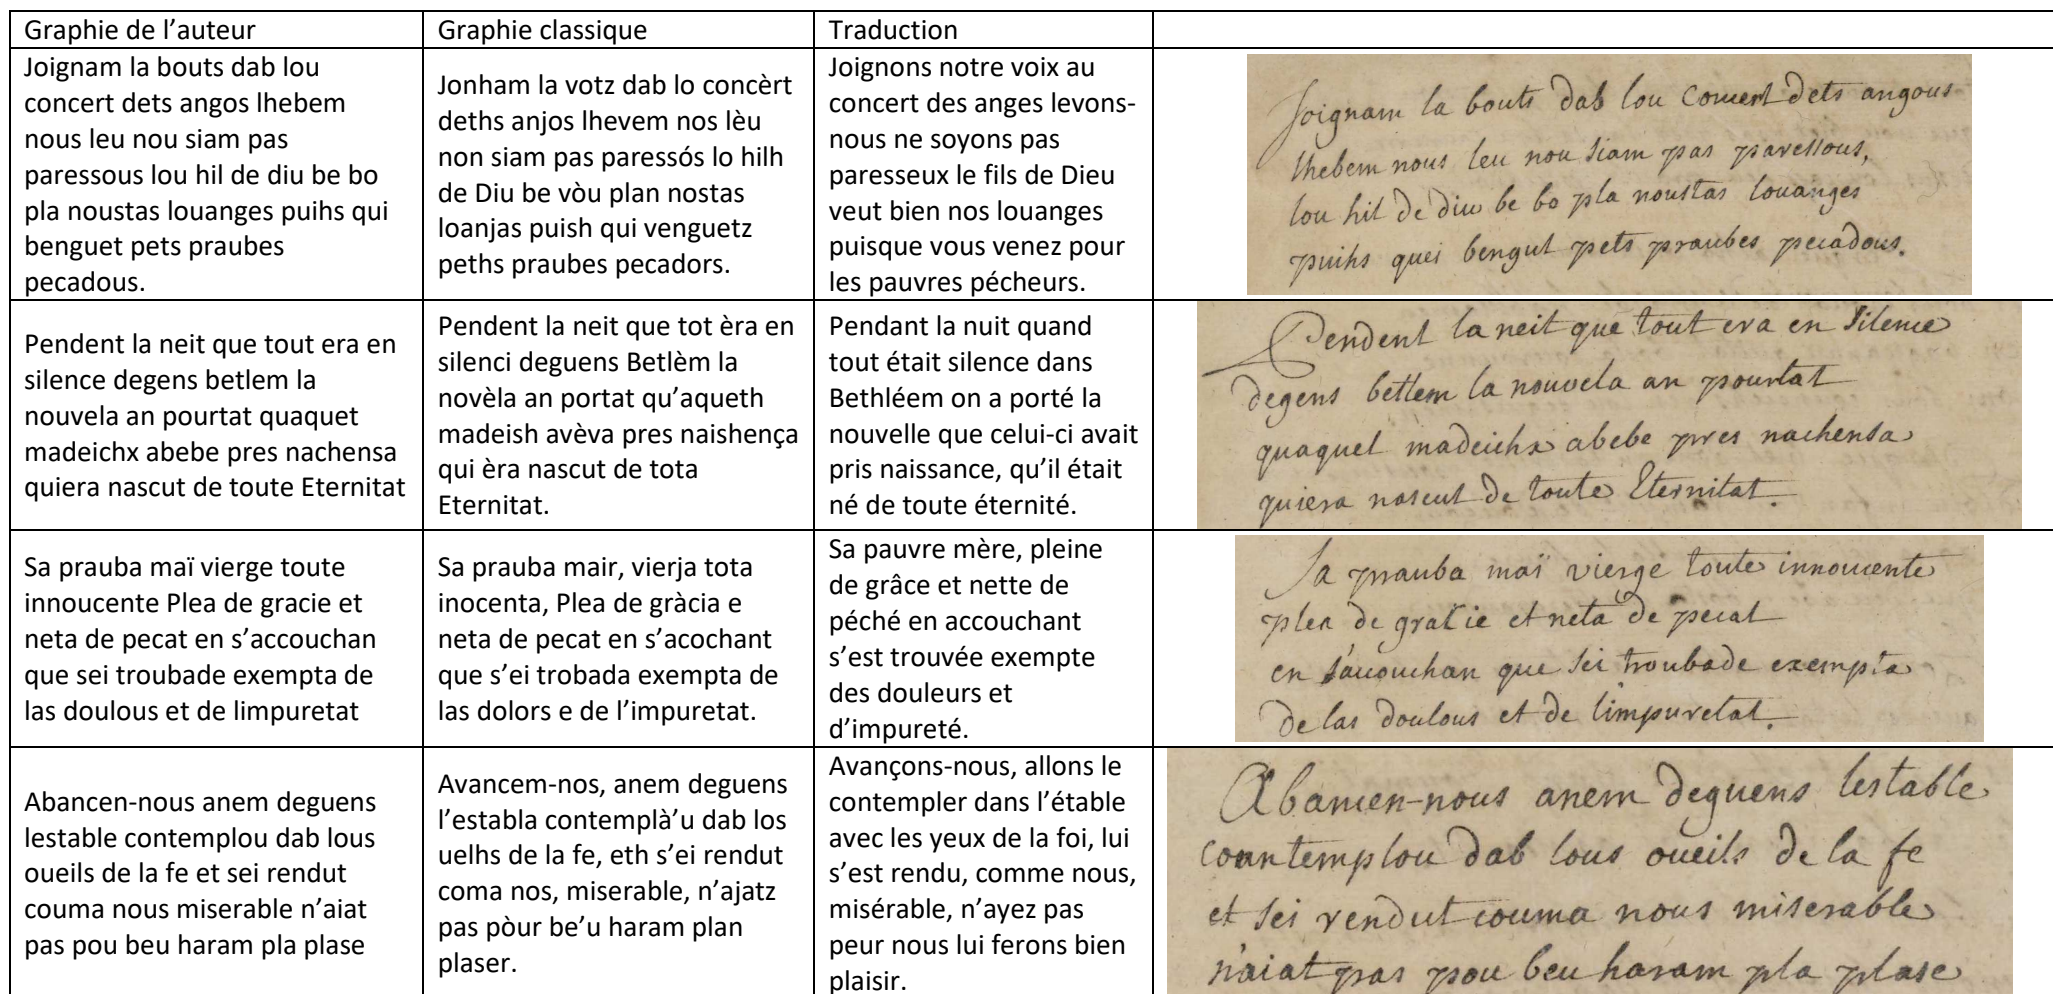 Graphie de l’auteur
Graphie classique
Traduction
Joignam la bouts dab lou
concert dets angos lhebem
nous leu nou siam pas
paressous lou hil de diu be bo
pla noustas louanges puihs qui
benguet pets praubes
pecadous.
Jonham la votz dab lo concèrt
deths anjos lhevem nos lèu
non siam pas paressós lo hilh
de Diu be vòu plan nostas
loanjas puish qui venguetz
peths praubes pecadors.
Joignons notre voix au
concert des anges levons-
nous ne soyons pas
paresseux le fils de Dieu
veut bien nos louanges
puisque vous venez pour
les pauvres pécheurs.
Joignam la bouts dab lou concert dets angous
lhebem nous leu nou siam pas paressous,
lou hil de diu be bo pla noustas louanges
puihs quei bengut pets praubes pecadous.
Pendent la neit que tout era en
silence degens betlem la
nouvela an pourtat quaquet
madeichx abebe pres nachensa
quiera nascut de toute Eternitat
Pendent la neit que tot èra en
silenci deguens Betlèm la
novèla an portat qu’aqueth
madeish avèva pres naishença
qui èra nascut de tota
Eternitat.
Pendant la nuit quand
tout était silence dans
Bethléem on a porté la
nouvelle que celui-ci avait
pris naissance, qu’il était
né de toute éternité.
Pendent la neit que tout era en silence
degens betlem la nouvela an pourtat
quaquet madeichx abebe pres nachensa
quiera nascut de toute Eternitat.
Sa prauba maï vierge toute
innoucente Plea de gracie et
neta de pecat en s’accouchan
que sei troubade exempta de
las doulous et de limpuretat
Sa prauba mair, vierja tota
inocenta, Plea de gràcia e
neta de pecat en s’acochant
que s’ei trobada exempta de
las dolors e de l’impuretat.
Sa pauvre mère, pleine
de grâce et nette de
péché en accouchant
s’est trouvée exempte
des douleurs et
d’impureté.
Sa prauba maï vierge toute innoucente
plea de gracie et neta de pecat
en s'accouchan que sei troubade exempta
de las doulous et de limpuretat.
Abancen-nous anem deguens
lestable contemplou dab lous
oueils de la fe et sei rendut
couma nous miserable n’aiat
pas pou beu haram pla plase
Avancem-nos, anem deguens
l’establa contemplà’u dab los
uelhs de la fe, eth s’ei rendut
coma nos, miserable, n’ajatz
pas pòur be’u haram plan
plaser.
Avançons-nous, allons le
contempler dans l’étable
avec les yeux de la foi, lui
s’est rendu, comme nous,
misérable, n’ayez pas
peur nous lui ferons bien
plaisir.
Abancen-nous anem deguens lestable
countemplou dab lous oueils de la fe
et sei rendut couma nous miserable
n'aiat pas pou beu haram pla plase